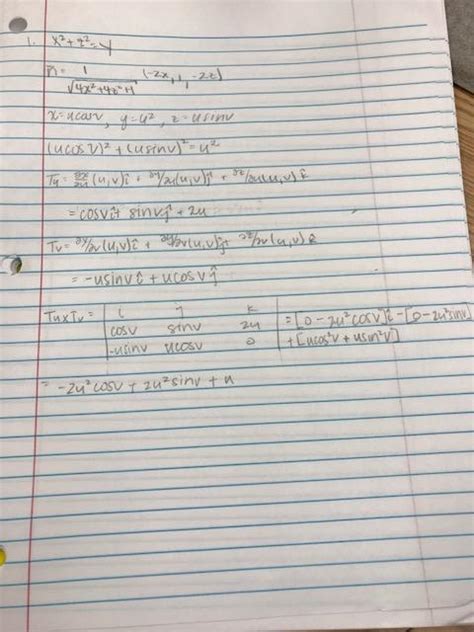 1. x² + z² = y
n̂ = 1/√(4x²+4z²+1) (-2x, 1, -2z)
x = ucosv, y = u², z = usinv
(ucosv)² + (usinv)² = u²
Tu = ∂x/∂u (u,v) î + ∂y/∂u (u,v) ĵ + ∂z/∂u (u,v) k̂
= cosv î + sinv ĵ + 2u
Tv = ∂x/∂v (u,v) î + ∂y/∂v (u,v) ĵ + ∂z/∂v (u,v) k̂
= -usinv î + ucosv ĵ
Tu x Tv = | i j k
cosv sinv 2u
-usinv ucosv 0 | = [0 - 2u²cosv] î - [0 - 2u²sinv]
+ [ucos²v + usin²v]
= -2u²cosv + 2u²sinv + u